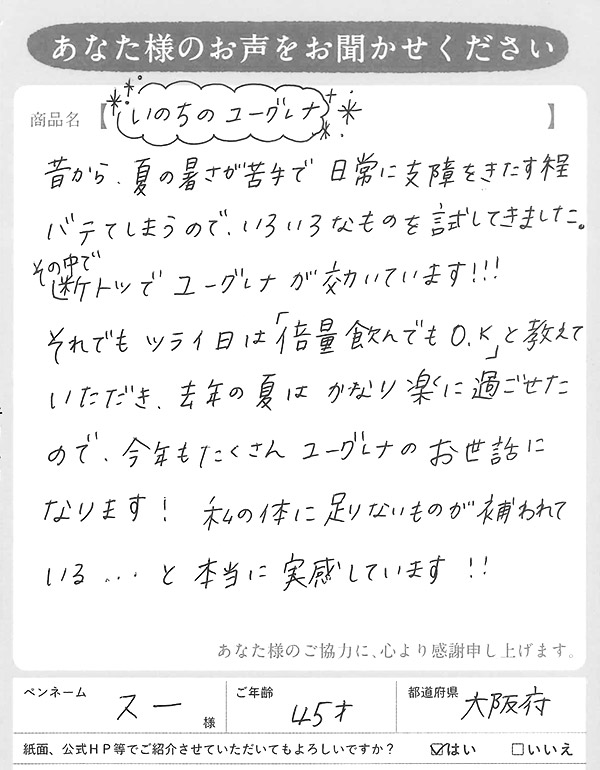 あなた様のお声をお聞かせください
商品名【いのちのユーグレナ】
昔から、夏の暑さが苦手で 日常に支障をきたす程
バテてしまうので、いろいろなものを試してきました。
その中で
断トツでユーグレナが効いています!!!
それでもツライ日は「倍量飲んでもO.K」と教えて
いただき、去年の夏はかなり楽に過ごせた
ので、今年もたくさんユーグレナのお世話に
なります! 私の体に足りないものが補われて
いる...と本当に実感しています!!
あなた様のご協力に、心より感謝申し上げます。
ペンネーム スー 様 ご年齢 45才 都道府県 大阪府
紙面、公式HP等でご紹介させていただいてもよろしいですか? ☑はい □いいえ